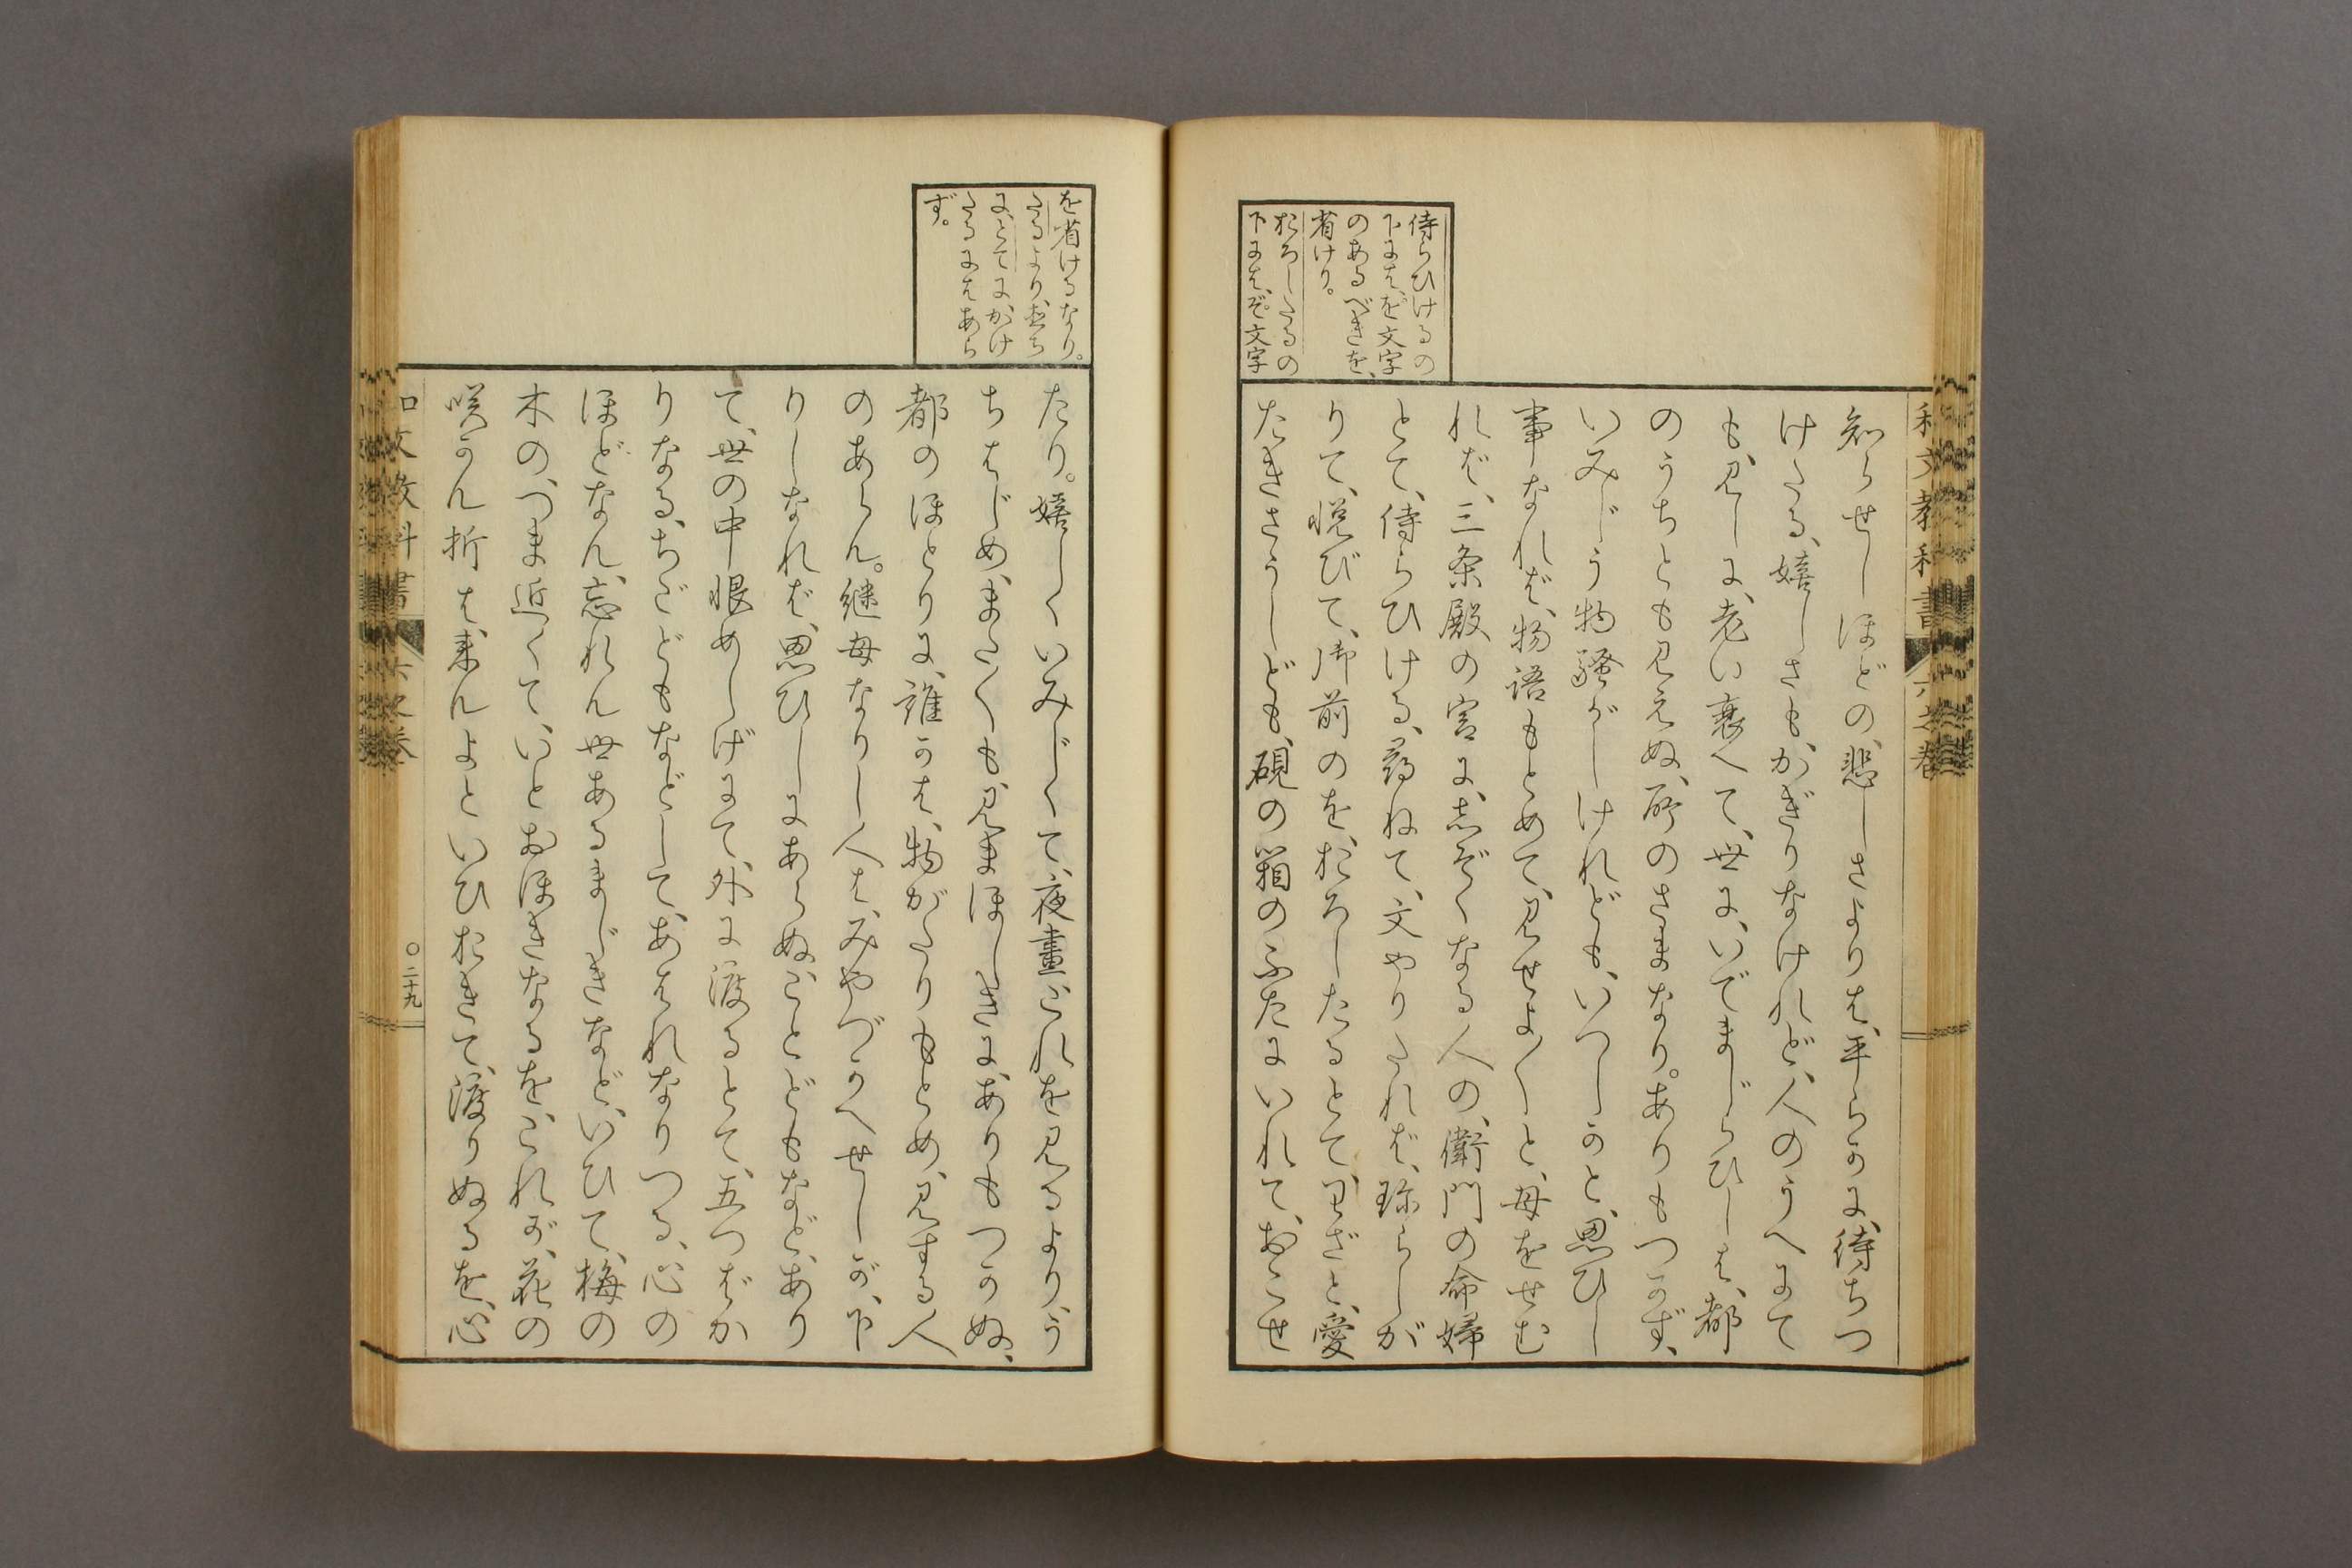 和文教科書 六之巻
侍らひけるの
下には、を文字
のあるべきを、
省けり。
おろしたるの
下には、ぞ文字
知らせしほどの、悲しさよりは、平らかに、待ちつ
けたる、嬉しさも、かぎりなけれど、人のうへにて
も、見しに、老い衰へて、世に、いでまじらひしは、都
のうちとも見えぬ、所のさまなり。ありもつかず、
いみじう物騒がしけれども、いつしかと、思ひし
事なれば、物語もとめて、見せよ〱と、母をせむ
れば、三条殿の宮に、志ぞくなる人の、衛門の命婦
とて、侍らひける、尋ねて、文やりたれば、珍らしが
りて、悦びて、御前のを、おろしたるとて、わざと、愛
たきさうしども、硯の箱のふたにいれて、おこせ
を省けるなり。
たるより、直ち
に、とてにかけ
たるにはあら
ず。
たり。嬉しくいみじくて、夜晝これを見るより、う
ちはじめ、また〱も、見まほしきに、ありもつかぬ、
都のほとりに、誰かは、物がたりもとめ、見する人
のあらん。継母なりし人は、みやづかへせしが、下
りしなれば、思ひしにあらぬ、ことどもなど、あり
て、世の中恨めしげにて、外に渡るとて、五つばか
りなる、ちごどもなどして、あはれなりつる、心の
ほどなん、忘れん世あるまじきなど、いひて、梅の
木の、つま近くて、いとおほきなるを、これが、花の
咲かん折は、来んよといひおきて、渡りぬるを、心
和文教科書 六之巻
〇二十九